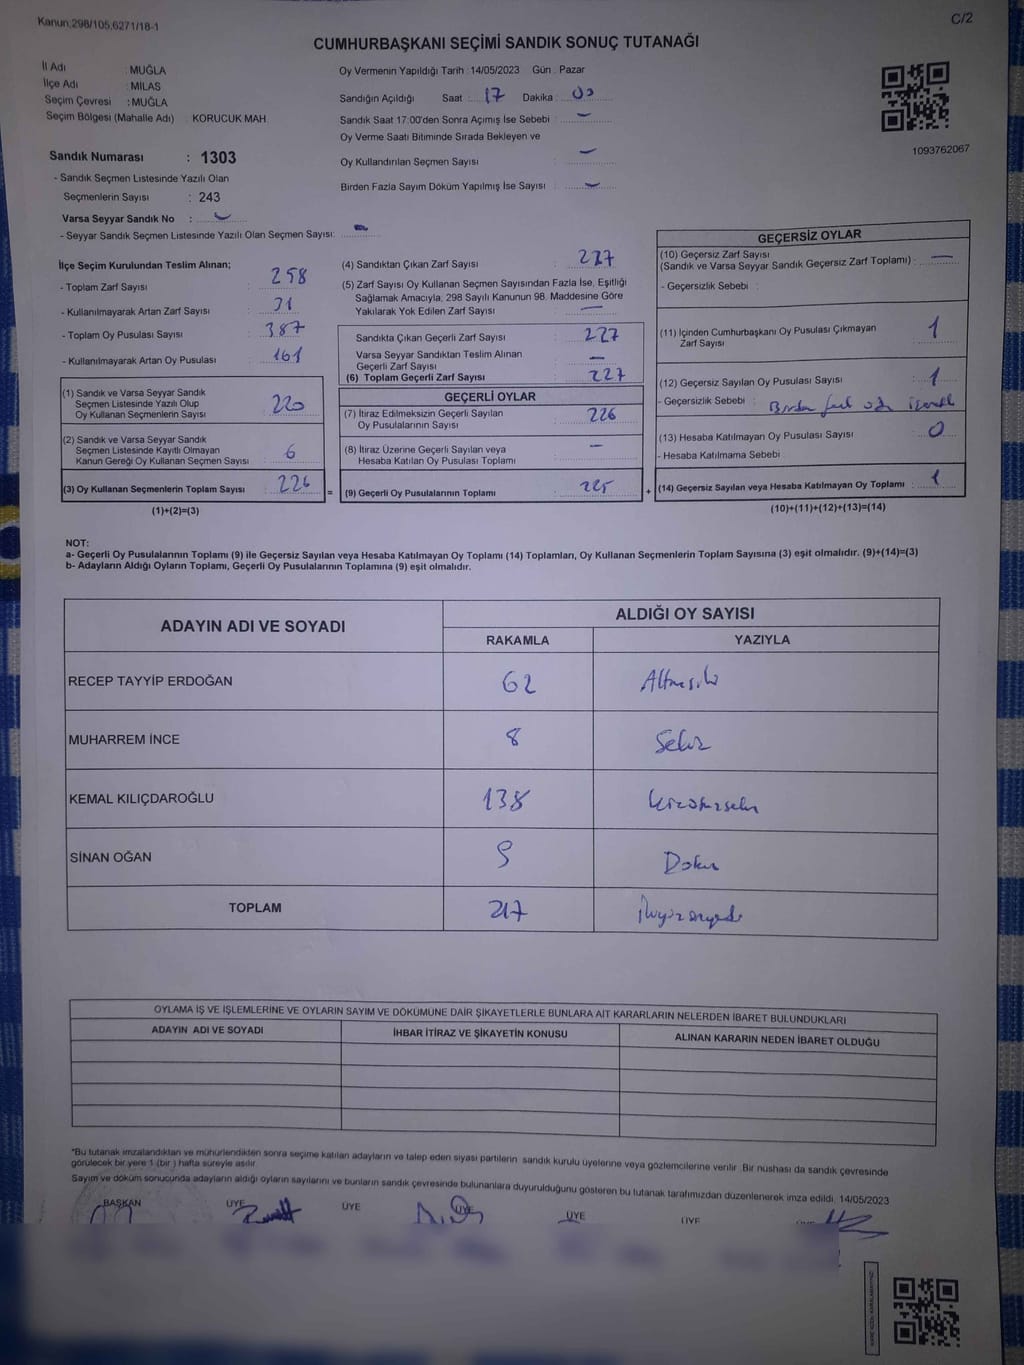 Kanun,298/105,6271/18-1
C/2
CUMHURBAŞKANI SEÇİMİ SANDIK SONUÇ TUTANAĞI
İl Adı : MUĞLA
İlçe Adı : MİLAS
Seçim Çevresi : MUĞLA
Seçim Bölgesi (Mahalle Adı) : KORUCUK MAH
Sandık Numarası : 1303
- Sandık Seçmen Listesinde Yazılı Olan
Seçmenlerin Sayısı : 243
Varsa Seyyar Sandık No :
- Seyyar Sandık Seçmen Listesinde Yazılı Olan Seçmen Sayısı:
Oy Vermenin Yapıldığı Tarih : 14/05/2023 Gün : Pazar
Sandığın Açıldığı Saat : 17 Dakika : 00
Sandık Saat 17:00'den Sonra Açımış İse Sebebi :
Oy Verme Saati Bitiminde Sırada Bekleyen ve
Oy Kullandırılan Seçmen Sayısı :
Birden Fazla Sayım Döküm Yapılmış İse Sayısı :
1093762067
İlçe Seçim Kurulundan Teslim Alınan;
- Toplam Zarf Sayısı : 258
- Kullanılmayarak Artan Zarf Sayısı : 31
- Toplam Oy Pusulası Sayısı : 387
- Kullanılmayarak Artan Oy Pusulası : 161
(1) Sandık ve Varsa Seyyar Sandık
Seçmen Listesinde Yazılı Olup
Oy Kullanan Seçmenlerin Sayısı : 220
(2) Sandık ve Varsa Seyyar Sandık
Seçmen Listesinde Kayıtlı Olmayan
Kanun Gereği Oy Kullanan Seçmen Sayısı : 6
(3) Oy Kullanan Seçmenlerin Toplam Sayısı : 226
(1)+(2)=(3)
(4) Sandıktan Çıkan Zarf Sayısı : 227
(5) Zarf Sayısı Oy Kullanan Seçmen Sayısından Fazla İse, Eşitliği
Sağlamak Amacıyla, 298 Sayılı Kanunun 98. Maddesine Göre
Yakılarak Yok Edilen Zarf Sayısı :
Sandıkta Çıkan Geçerli Zarf Sayısı : 227
Varsa Seyyar Sandıktan Teslim Alınan
Geçerli Zarf Sayısı :
(6) Toplam Geçerli Zarf Sayısı : 227
GEÇERLİ OYLAR
(7) İtiraz Edilmeksizin Geçerli Sayılan
Oy Pusulalarının Sayısı : 226
(8) İtiraz Üzerine Geçerli Sayılan veya
Hesaba Katılan Oy Pusulası Toplamı :
= (9) Geçerli Oy Pusulalarının Toplamı : 225 +
GEÇERSİZ OYLAR
(10) Geçersiz Zarf Sayısı
(Sandık ve Varsa Seyyar Sandık Geçersiz Zarf Toplamı) :
- Geçersizlik Sebebi :
(11) İçinden Cumhurbaşkanı Oy Pusulası Çıkmayan
Zarf Sayısı : 1
(12) Geçersiz Sayılan Oy Pusulası Sayısı : 1
- Geçersizlik Sebebi : Birden
(13) Hesaba Katılmayan Oy Pusulası Sayısı : 0
- Hesaba Katılmama Sebebi :
(14) Geçersiz Sayılan veya Hesaba Katılmayan Oy Toplamı : 1
(10)+(11)+(12)+(13)=(14)
NOT:
a- Geçerli Oy Pusulalarının Toplamı (9) ile Geçersiz Sayılan veya Hesaba Katılmayan Oy Toplamı (14) Toplamları, Oy Kullanan Seçmenlerin Toplam Sayısına (3) eşit olmalıdır. (9)+(14)=(3)
b- Adayların Aldığı Oyların Toplamı, Geçerli Oy Pusulalarının Toplamına (9) eşit olmalıdır.
ADAYIN ADI VE SOYADI ALDIĞI OY SAYISI
RAKAMLA YAZIYLA
RECEP TAYYİP ERDOĞAN 62 Altmışiki
MUHARREM İNCE 8 Sekiz
KEMAL KILIÇDAROĞLU 138
SİNAN OĞAN 9 Dokuz
TOPLAM 217 İkiyüzonyedi
OYLAMA İŞ VE İŞLEMLERİNE VE OYLARIN SAYIM VE DÖKÜMÜNE DAİR ŞİKAYETLERLE BUNLARA AİT KARARLARIN NELERDEN İBARET BULUNDUKLARI
ADAYIN ADI VE SOYADI İHBAR İTİRAZ VE ŞİKAYETİN KONUSU ALINAN KARARIN NEDEN İBARET OLDUĞU
*Bu tutanak imzalandıktan ve mühürlendikten sonra seçime katılan adayların ve talep eden siyasi partilerin sandık kurulu üyelerine veya gözlemcilerine verilir. Bir nüshası da sandık çevresinde
görülecek bir yere 1 (bir ) hafta süreyle asılır.
Sayım ve döküm sonucunda adayların aldığı oyların sayılarını ve bunların sandık çevresinde bulunanlara duyurulduğunu gösteren bu tutanak tarafımızdan düzenlenerek imza edildi. 14/05/2023
BAŞKAN ÜYE ÜYE ÜYE ÜYE ÜYE